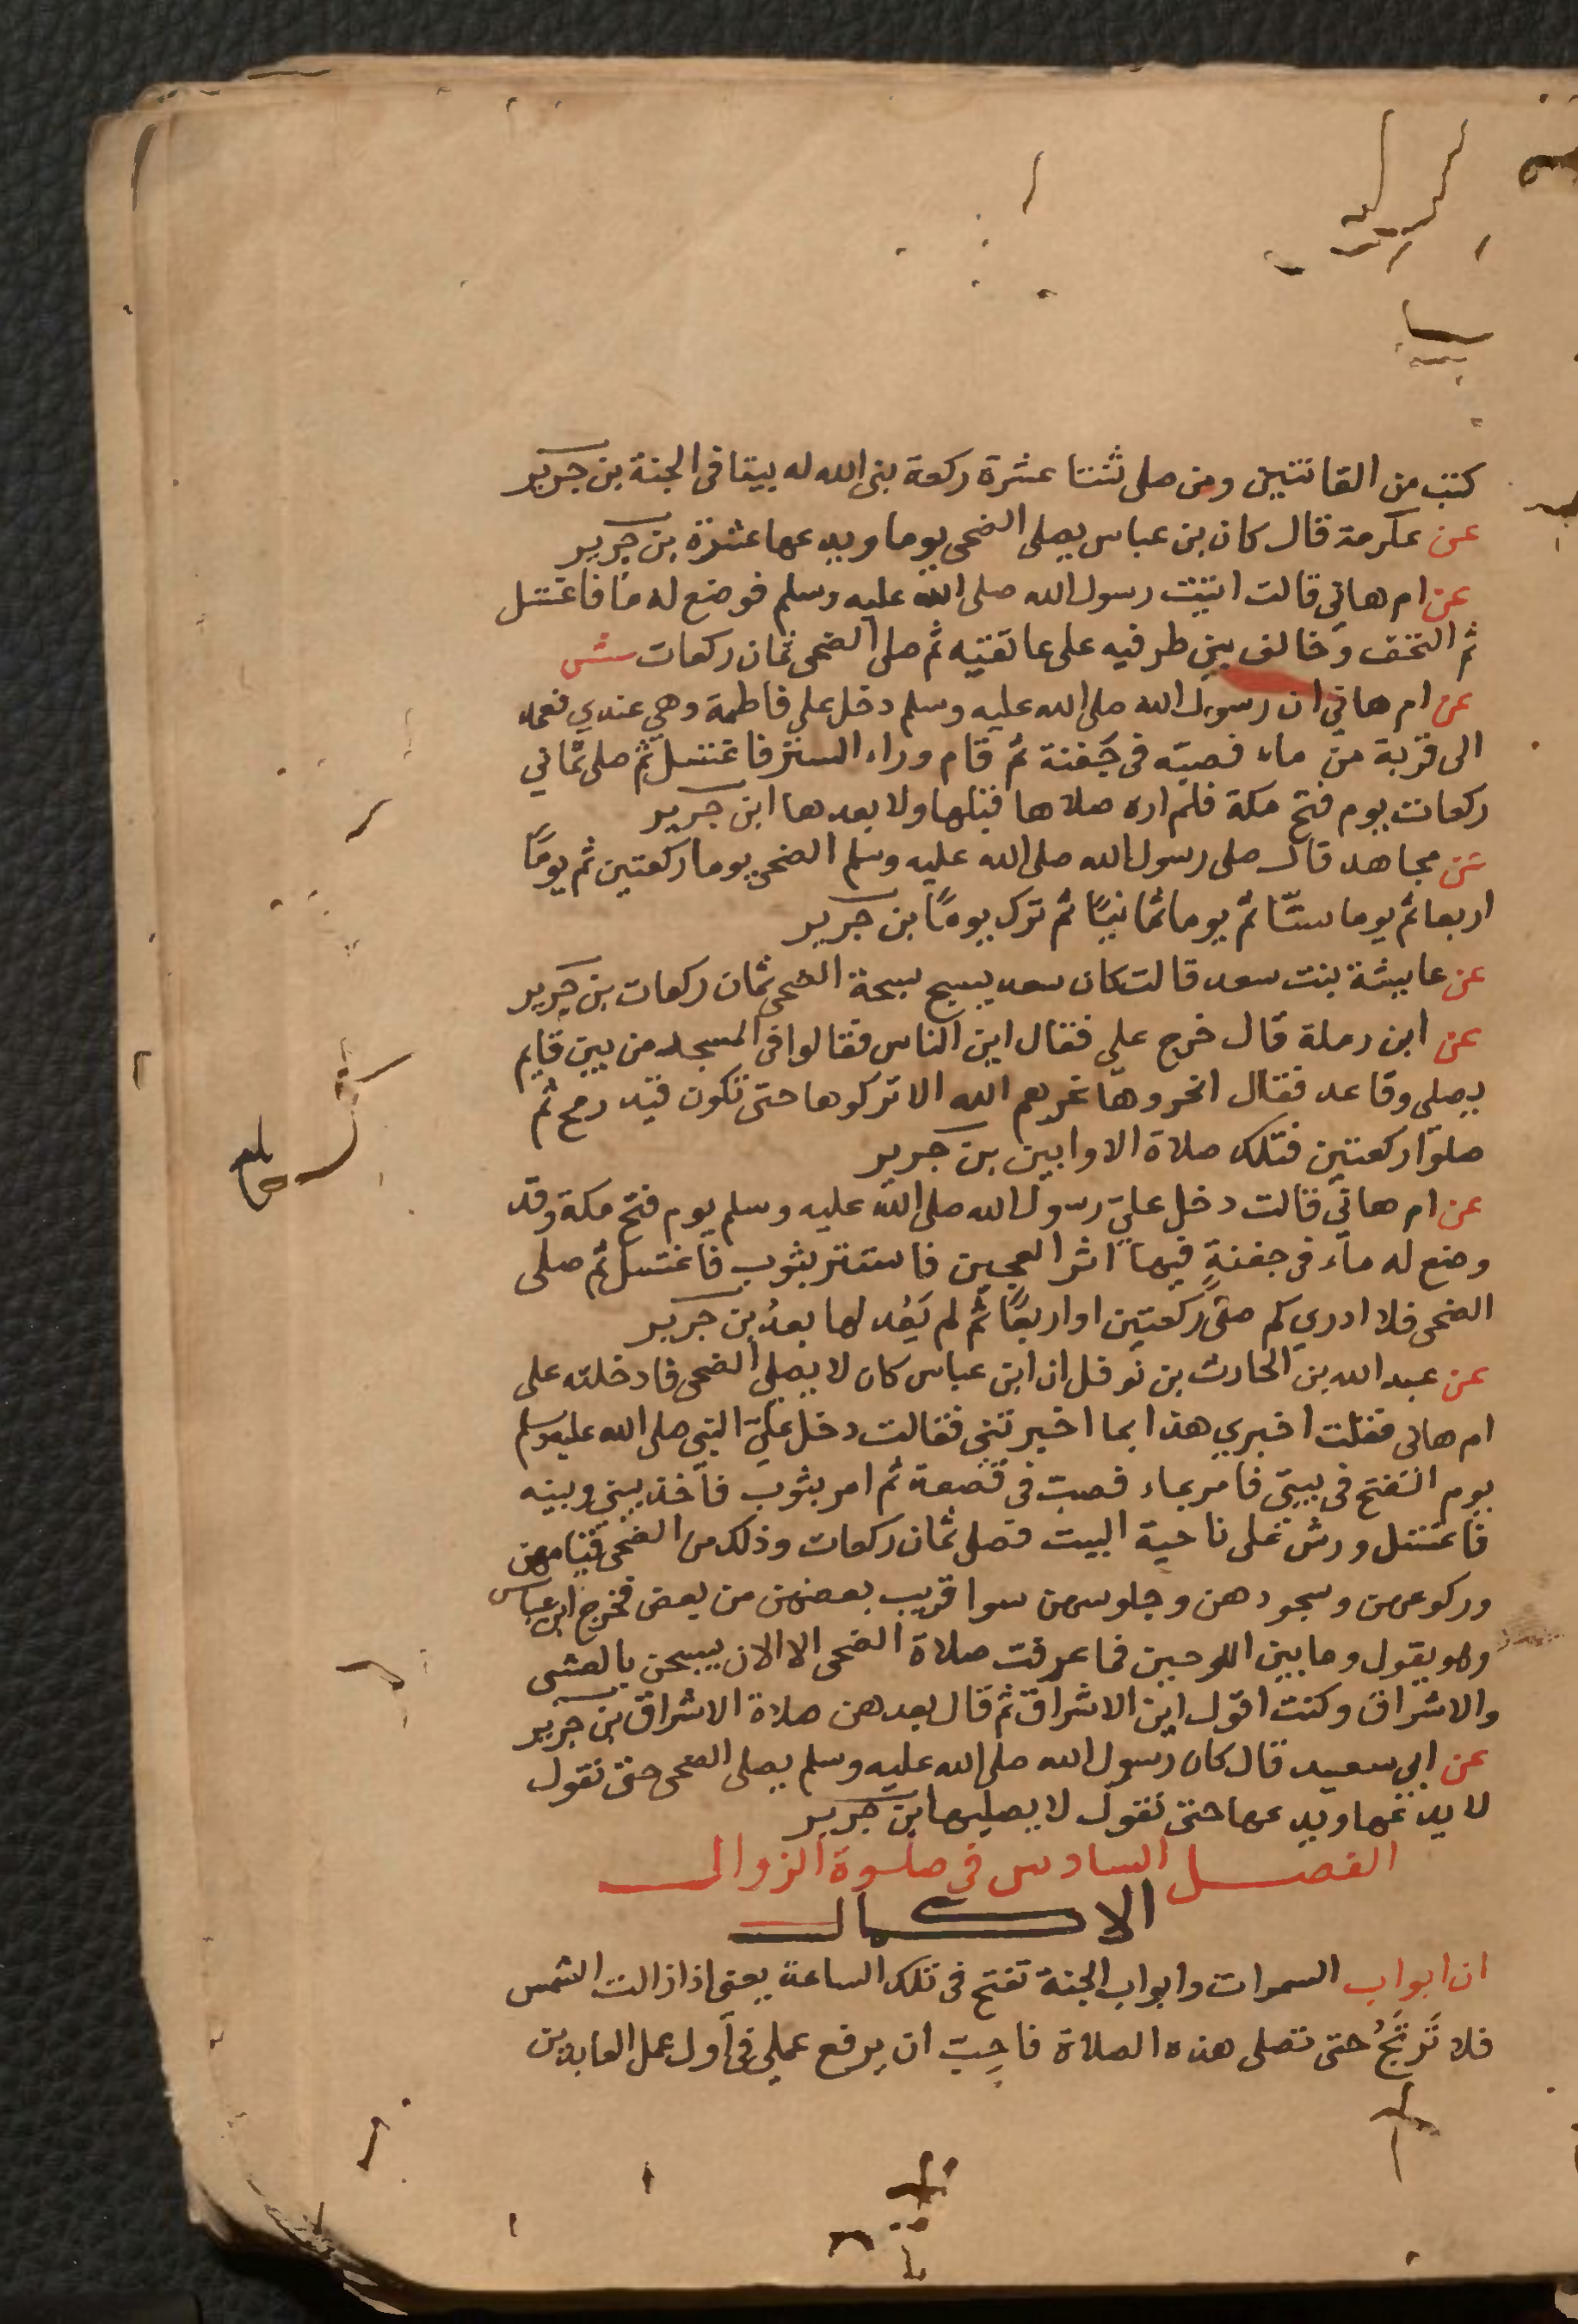 كتب من القانتين ومن صلى ثنتا عشرة ركعة بنى الله له بيتا فى الجنة بن جرير
عن عكرمة قال كان بن عباس يصلى الضحى يوما ويدعها عشرة بن جرير
عن ام هاني قالت اتيت رسول الله صلى الله عليه وسلم فوضع له ما فاغتسل
ثم التحف وخالف بين طرفيه على عاتقيه ثم صلى الضحى ثمان ركعات ش
عن ام هاني ان رسول الله صلى الله عليه وسلم دخل على فاطمة وهي عندي فعمد
الى قربة من ماء فصبّه فى جَفنة ثم قام وراء الستر فاغتسل ثم صلى ثماني
ركعات يوم فتح مكة فلم اره صلاها قبلها ولا بعدها ابن جرير
عن مجاهد قال صلى رسول الله صلى الله عليه وسلم الضحى يوما ركعتين ثم يومًا
اربعا ثم يوما ستّا ثم يوما ثمانيًا ثم ترك يومًا بن جرير
عن عايشة بنت سعد قالت كان سعد يسبح سبحة الضحى ثمان ركعات بن جرير
عن ابن رملة قال خرج علي فقال اين الناس فقالوا فى المسجد من بين قايم
يصلى وقاعد فقال انحروها نحرهم الله الا تركوها حتى تكون قيد رمح ثم
صلوا ركعتين فتلك صلاة الاوابين بن جرير
عن ام هاني قالت دخل عليّ رسول الله صلى الله عليه وسلم يوم فتح مكة وقد
وضع له ماء فى جفنةٍ فيها اثر العجين فاستتر بثوب فاغتسل ثم صلى
الضحى فلا ادري كم صلى ركعتين او اربعًا ثم لم يَعُد لها بعدُ بن جرير
عن عبد الله بن الحارث بن نوفل ان ابن عباس كان لا يصلى الضحى فادخلته على
ام هانى فقلت اخبري هذا بما اخبرتني فقالت دخل عليّ النبي صلى الله عليه وسلم
يوم الفتح فى بيتي فامر بماء فصب فى قصعة ثم امر بثوب فاخذ بيني وبينه
فاغتسل ورش على ناحية البيت فصلى ثمان ركعات وذلك من الضحى قيامهن
وركوعهن وسجودهن وجلوسهن سوا قريب بعضهن من بعض فخرج ابن عباس
وهو يقول وما بين اللوحين فما عرفت صلاة الضحى الا الان يسبحن بالعشى
والاشراق وكنت اقول اين الاشراق ثم قال بعد هن صلاة الاشراق بن جرير
عن ابى سعيد قال كان رسول الله صلى الله عليه وسلم يصلى الضحى حتى نقول
لا يدعها ويدعها حتى نقول لا يصليها ابن جرير
الفصل السادس فى صلوة الزوال
الاكمال
ان ابواب السموات وابواب الجنة تفتح فى تلك الساعة يعنى اذا زالت الشمس
فلا تُرتَجُ حتى تصلى هذه الصلاة فاحِبّ ان يرفع عملى فى اول عمل العابدين